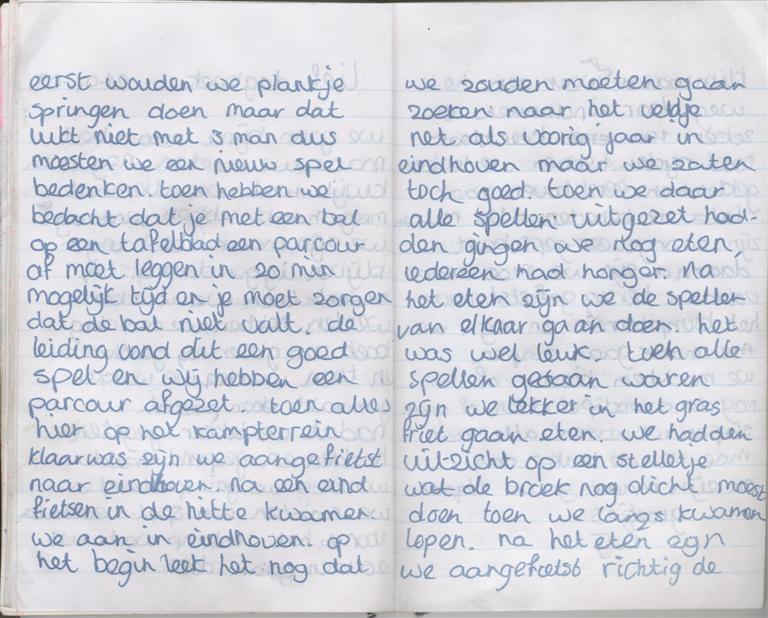 eerst wouden we plankje
springen doen maar dat
lukt niet met 3 man dus
moesten we een nieuw spel
bedenken toen hebben we
bedacht dat je met een bal
op een tafelblad een parcour
af moet leggen in zo min
mogelijk tijd en je moet zorgen
dat de bal niet valt. de
leiding vond dit een goed
spel en wij hebben een
parcour afgezet. toen alles
hier op het kampterrein
klaar was zijn we aangefietst
naar eindhoven. na een eind
fietsen in de hitte kwamen
we aan in eindhoven. op
het begin leek het nog dat
we zouden moeten gaan
zoeken naar het veldje
net als voorig jaar in
eindhoven maar we zaten
toch goed. toen we daar
alle spellen uitgezet had-
den gingen we nog eten,
iedereen had honger. na
het eten zijn we de spellen
van elkaar gaan doen. het
was wel leuk. toen alle
spellen gedaan waren
zijn we lekker in het gras
friet gaan eten. we hadden
uitzicht op een stelletje
wat de broek nog dicht moest
doen toen we langs kwamen
lopen. na het eten zijn
we aangefietst richtig de